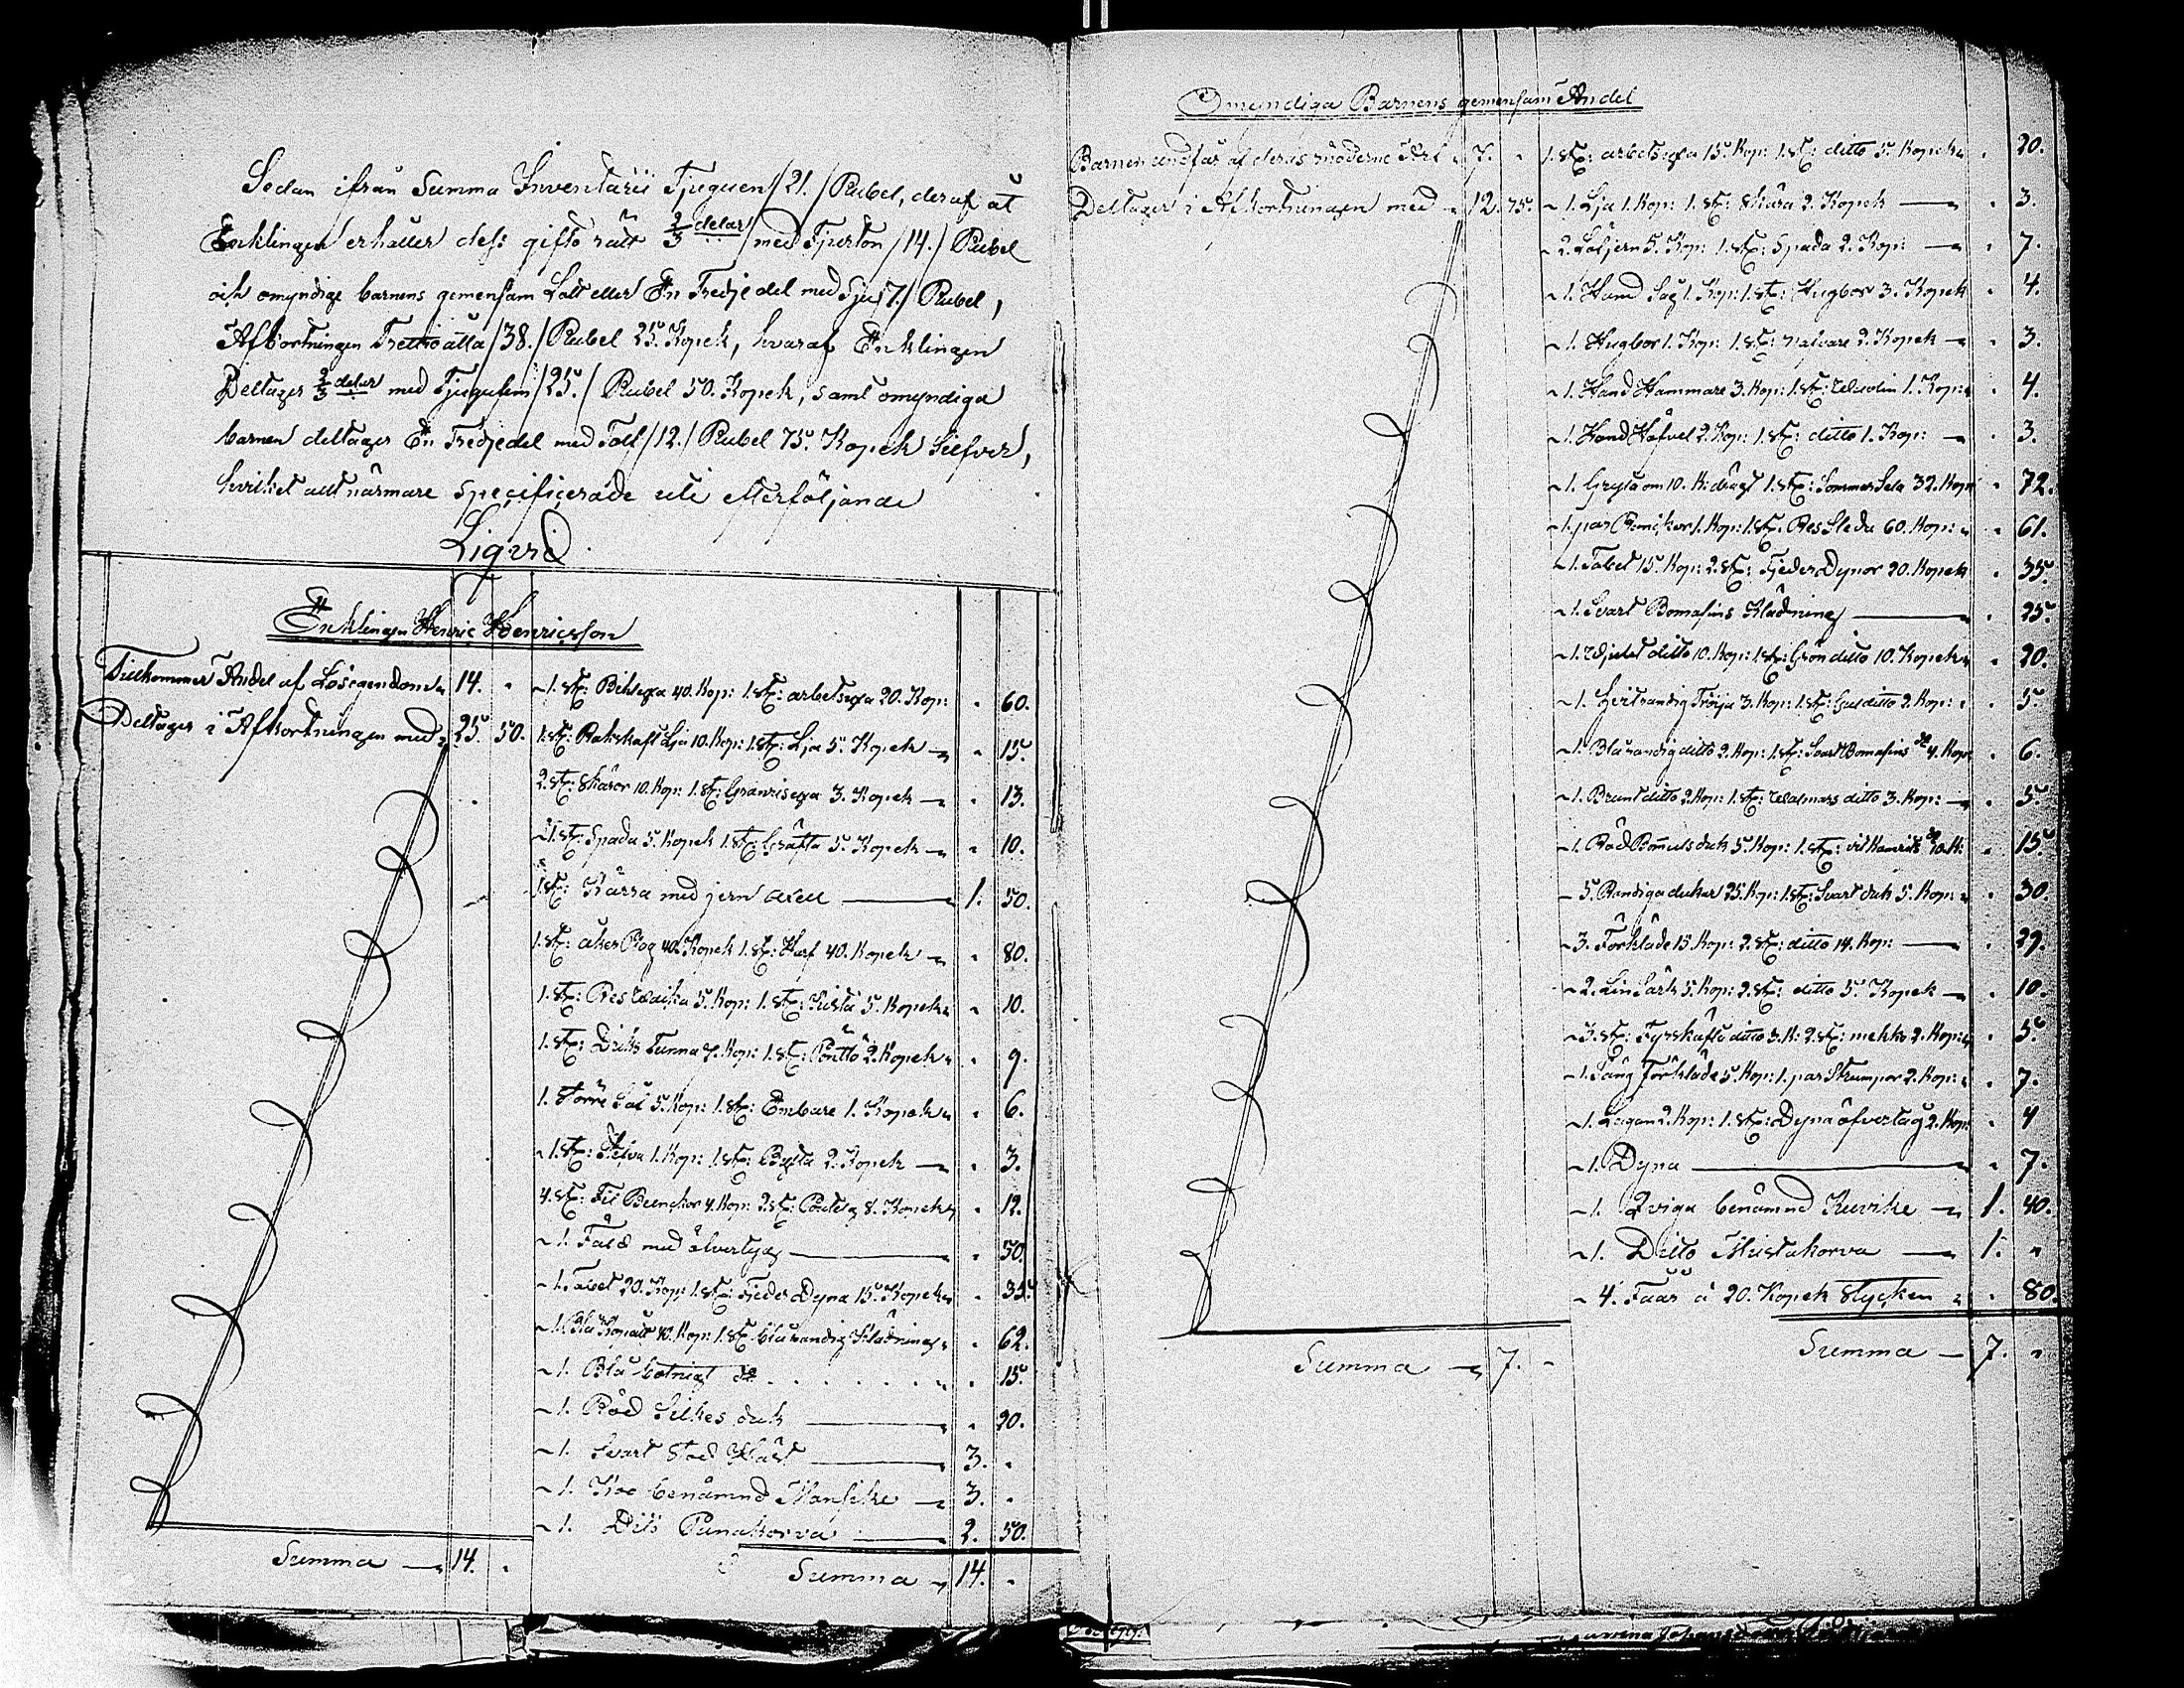 Sedan ifrån Summa Inventarii Tjuguen /21./ Rubel, deraf åt
Encklingen erhåller dess gifto rätt 2/3 delar med Fjorton /14./ Rubel
och omyndige barnens gemensam Lott eller En Tredje del med Sju /7./ Rubel,
Afkortningen Trettioåtta /38./ Rubel 25. Kopek, hvaraf Encklingen
Deltager 2/3 delar med Tjugufem /25./ Rubel 50. Kopek, samt omyndiga
barnen deltager En Tredjedel med Tolf /12./ Rubel 75. Kopek Silfver,
hvilket allt närmare specificerade uti efterföljande
Liqvid.
Encklingen Henric Henricsson
Tillkommer Andel af Lösegendom 14. "
Deltager i Afkortningen med 25. 50.
1. st: Bilsexa 40. Kop: 1. st: arbetsexa 20. Kop: " 60.
1. st: Rakskaft Lia 10. Kop: 1. st: Lja 5. Kopek " 15.
2. st: Skäror 10. Kop: 1. st: Granrisexa 3. Kopek " 13.
1. st: Spada 5. Kopek 1. st: Gräfta 5. Kopek " 10.
1. st: Kärra med jern axell 1. 50.
1. st: åker Plog 40. Kopek 1. st: Harf 40. Kopek " 80.
1. st: Res Wacka 5. Kop: 1. st: Kista 5. Kopek " 10.
1. st: Dricks Tunna 7. Kop: 1. st: Pönttö 2. Kopek " 9.
1. större Så 5. Kop: 1. st: Embare 1. Kopek " 6.
1. st: 1. Kop: 1. st: Bytta 2. Kopek " 3.
4. st: Fil Bunckor 4. Kop: 2. st: 8. Kopek " 12.
1. Fålld med ölvertyg " 50.
1. Täcket 20. Kop: 1. st: Fjeder Dyna 15. Kopek " 35.
1. Blå 40. Kop: 1. st: blårandig Klädning " 62.
1. Blå do " 15.
1. Röd Silkes duk " 20.
1. Svart Sto Häst 3. "
1. Koo benämnd Mansike 3. "
1. Dito Punakorva 2. 50.
Summa 14. "
Summa 14. "
Omyndiga Barnens gemensam Andel
Barnen undfår af deras möderne Arf 7. "
Deltager i Afkortningen med 12. 75.
1. st: arbetsexa 15. Kop: 1. st: ditto 5. Kopek " 20.
1. Lja 1. Kop: 1. st: Skära 2. Kopek " 3.
2. 5. Kop: 1. st: Spada 2. Kop: " 7.
1. Hand Såg 1. Kop: 1. st: Hugbor 3. Kopek " 4.
1. Hugbor 1. Kop: 1. st: nafvare 2. Kopek " 3.
1. Hand Hammare 3. Kop: 1. st: 1. Kop: " 4.
1. Hand Höfvel 2. Kop: 1. st: ditto 1. Kop: " 3.
1. Gryta om 10. K: 1. st: Sommar Sela 32. Kop: " 72.
1. par 1. Kop: 1. st. Res Sleda 60. Kop: " 61.
1. Täcket 15. Kop: 2. st: Fjeder Dynor 20. Kopek " 35.
1. Svart Bomasins Klädning " 25.
1. ditto 10. Kop: 1. st: Grön ditto 10. Kopek " 20.
1. hvitrandig Tröija 3. Kop: 1. st: Gul ditto 2. Kop: " 5.
1. Blårandig ditto 2. Kop: 1. st: Svart Bomasins do 4. Kop: " 6.
1. Brunt ditto 2. Kop: 1. st: Walmars ditto 3. Kop: " 5.
1. Röd Bomuls duk 5. Kop: 1. st: vit do 10. K: " 15.
5. Randiga dukar 25. Kop: 1. st: Svart duk 5. Kop: " 30.
3. Förkläde 15. Kop: 2. st: ditto 14. Kop: " 29.
2. Lin Särk 5. Kop: 2. st: ditto 5. Kopek " 10.
3. st: Fyrskafts ditto 3. K: 2. st: mekko 2. Kop: " 5.
1. Säng Förkläde 5. Kop: 1. par Strumpor 2. Kop: " 7.
1. Lagan 2. Kop: 1. st: Dyna öfvertåg 2. Kop: " 4
1. Dyna " 7.
1. Qviga benämnd Kuvike 1. 40.
1. Ditto Mustakorva 1. "
4. Fåår á 20. Kopek Stycken " 80.
Summa 7. "
Summa 7. "